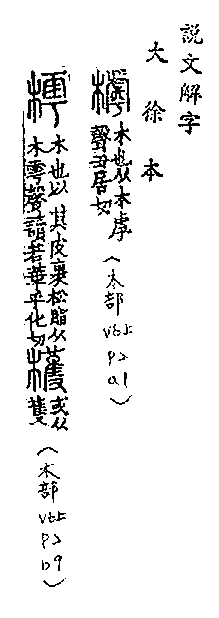 說文解字
大徐本
㯉木也从木虖聲丑居切（木部 v6上 p2 a1）
樗木也以其皮裹松脂从木雩聲讀若華乎化切檴或从蒦（木部 v6上 p2 b9）